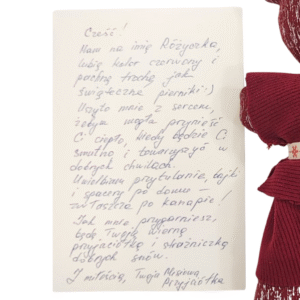 Cześć!
Mam na imię Różyczka,
lubię kolor czerwony i
pachnę trochę jak
świąteczne pierniki :)
Uszyto mnie z sercem,
żebym mogła przynieść
Ci ciepło, kiedy będzie Ci
smutno i towarzyszyć w
dobrych chwilach.
Uwielbiam przytulanie, bajki
i spacery po domu –
zwłaszcza po kanapie!
Jak mnie przygarniesz,
będę Twoją wierną
przyjaciółką i strażniczką
dobrych snów.
Z miłością, Twoja
Przyjaciółka